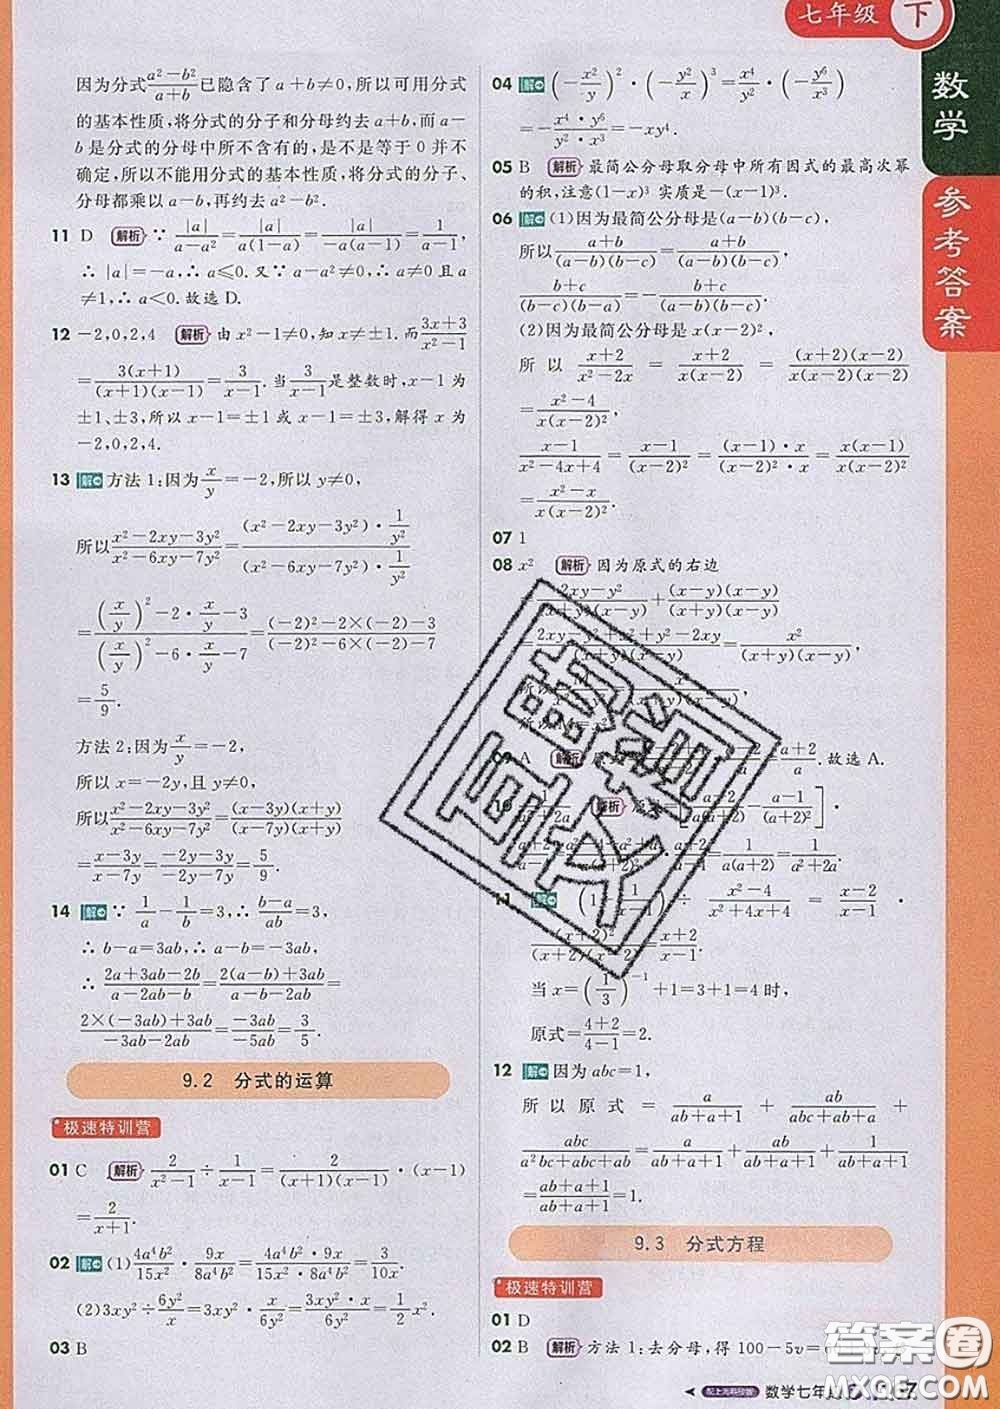 七年级 下
数学
参考答案
因为分式(a²-b²)/(a+b)已隐含了a+b≠0,所以可用分式
的基本性质,将分式的分子和分母约去a+b,而a-
b是分式的分母中所不含有的,是不是等于0并不
确定,所以不能用分式的基本性质,将分式的分子、
分母都乘以a-b,再约去a²-b².
11 D 解析 ∵ |a|/(a-a²)=|a|/(a(1-a))=|a|/(-a(a-1))=1/(a-1),
∴|a|=-a,∴a≤0.又∵a-a²≠0,∴a≠0且a
≠1,∴a<0.故选D.
12 -2,0,2,4 解析 由x²-1≠0,知x≠±1.而(3x+3)/(x²-1)
=3(x+1)/((x+1)(x-1))=3/(x-1).当3/(x-1)是整数时,x-1为
±1,±3,所以x-1=±1或x-1=±3,解得x为
-2,0,2,4.
13 解 方法1:因为x/y=-2,所以y≠0,
所以(x²-2xy-3y²)/(x²-6xy-7y²)=((x²-2xy-3y²)·1/y²)/((x²-6xy-7y²)·1/y²)
=((x/y)²-2·x/y-3)/((x/y)²-6·x/y-7)=((-2)²-2×(-2)-3)/((-2)²-6×(-2)-7)
=5/9.
方法2:因为x/y=-2,
所以x=-2y,且y≠0,
所以(x²-2xy-3y²)/(x²-6xy-7y²)=(x-3y)(x+y)/((x-7y)(x+y))
=(x-3y)/(x-7y)=(-2y-3y)/(-2y-7y)=5/9.
14 解 ∵1/a-1/b=3,∴(b-a)/ab=3,
∴b-a=3ab,∴a-b=-3ab,
∴(2a+3ab-2b)/(a-2ab-b)=(2(a-b)+3ab)/(a-b-2ab)=
(2×(-3ab)+3ab)/(-3ab-2ab)=(-3ab)/(-5ab)=3/5.
9.2 分式的运算
极速特训营
01 C 解析 2/(x²-1)÷1/(x-1)=2/((x+1)(x-1))·(x-1)
=2/(x+1).
02 解 (1)4a⁴b²/15x²·9x/8a⁴b²=(4a⁴b²·9x)/(15x²·8a⁴b²)=3/10x.
(2)3xy²÷6y²/x=3xy²·x/6y²=(3xy²·x)/6y²=1/2x².
03 B
04 解 (-x²/y)²·(-y²/x)³=x⁴/y²·(-y⁶/x³)
=-(x⁴·y⁶)/(y²·x³)=-xy⁴.
05 B 解析 最简公分母取分母中所有因式的最高次幂
的积,注意(1-x)³实质是-(x-1)³.
06 解 (1)因为最简公分母是(a-b)(b-c),
所以(a+b)/((a-b)(b-c))=(a+b)/((a-b)(b-c)),
(b+c)/((b-c)(b-a))=-(b+c)/((a-b)(b-c)).
(2)因为最简公分母是x(x-2)²,
所以(x+2)/(x²-2x)=(x+2)/(x(x-2))=(x+2)(x-2)/(x(x-2)(x-2))
=(x²-4)/(x(x-2)²),
(x-1)/(x²-4x+4)=(x-1)/(x-2)²=((x-1)·x)/((x-2)²·x)=x(x-1)/(x(x-2)²)
=(x²-x)/(x(x-2)²).
07 1
08 x² 解析 因为原式的右边
=(2xy-y²)/((x+y)(x-y))+(x-y)(x-y)/((x+y)(x-y))
=(2xy-y²+x²+y²-2xy)/((x+y)(x-y))=x²/((x+y)(x-y)).
A 解析 =(a+2)/a.故选A.
10 解析
11 解 ÷(x²-4)/(x²+4x+4)=(x-2)/(x-1)·
(x+2)²/((x+2)(x-2))=(x+2)/(x-1).
当x=(1/3)⁻¹+1=3+1=4时,
原式=(4+2)/(4-1)=2.
12 解 因为abc=1,
所以原式=a/(ab+a+1)+ab/(abc+ab+a)+
abc/(a²bc+abc+ab)=a/(ab+a+1)+ab/(1+ab+a)+1/(a+1+ab)
=(ab+a+1)/(ab+a+1)=1.
9.3 分式方程
极速特训营
01 D
02 B 解析 方法1:去分母,得100-5v=
数学七年
答案圈